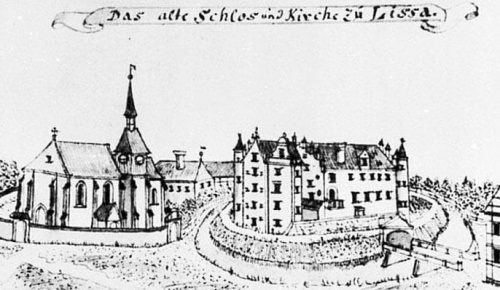 Das alte Schlos und Kirche zu Lissa.